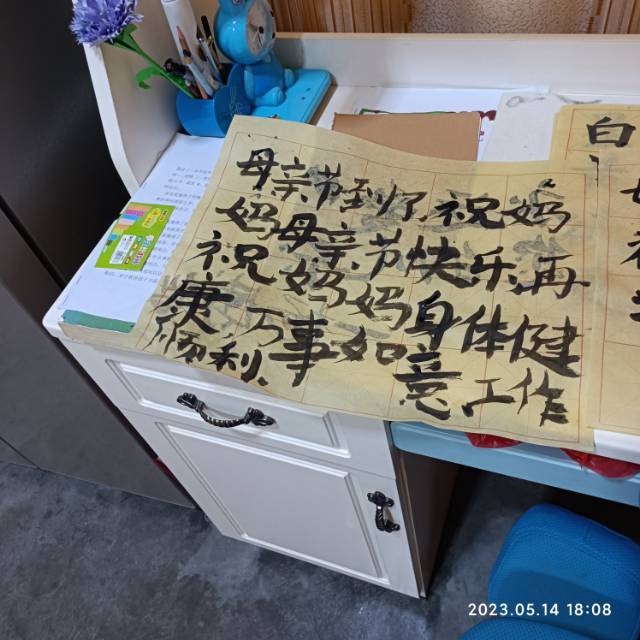 母亲节到了,祝妈
妈母亲节快乐,再
祝妈妈身体健
康,万事如意,工作
顺利、
白
2023.05.14 18:08